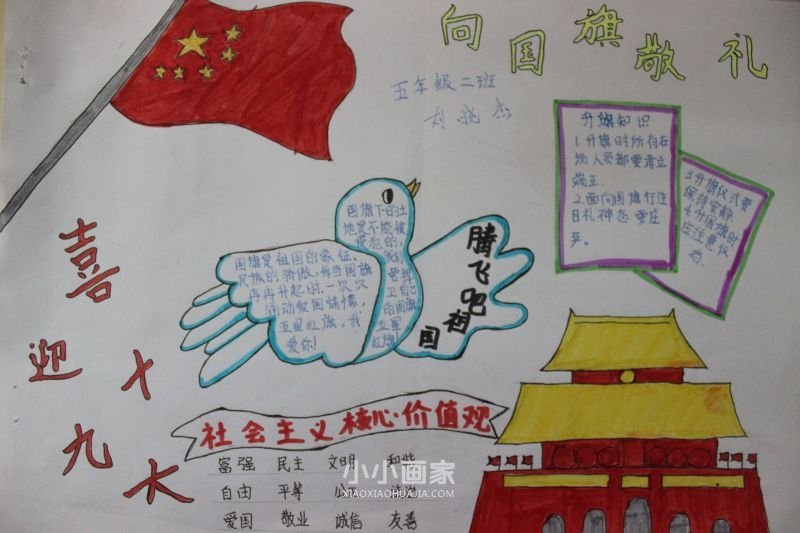 向国旗敬礼
五年级二班
刘晓杰
升旗知识
1.升旗时所有在
场人员都要肃立
端正.
2.面向国旗行注
目礼神态要庄
3.升旗仪式要
保持安静.
4.升国旗时
应注意仪
国旗下的土
地是不能被
侵犯的,
我们
要捍
卫自己
的国旗
五星
红旗!
国旗是祖国的象征、
民族的骄傲,每当国旗
冉冉升起时,一次次
涌动爱国情愫,
五星红旗,我
爱你!
腾飞吧祖国
喜迎十九大
社会主义核心价值观
富强 民主 文明 和谐
自由 平等 公正
爱国 敬业 诚信 友善
小小画家
XIAOXIAOHUAJIA.COM